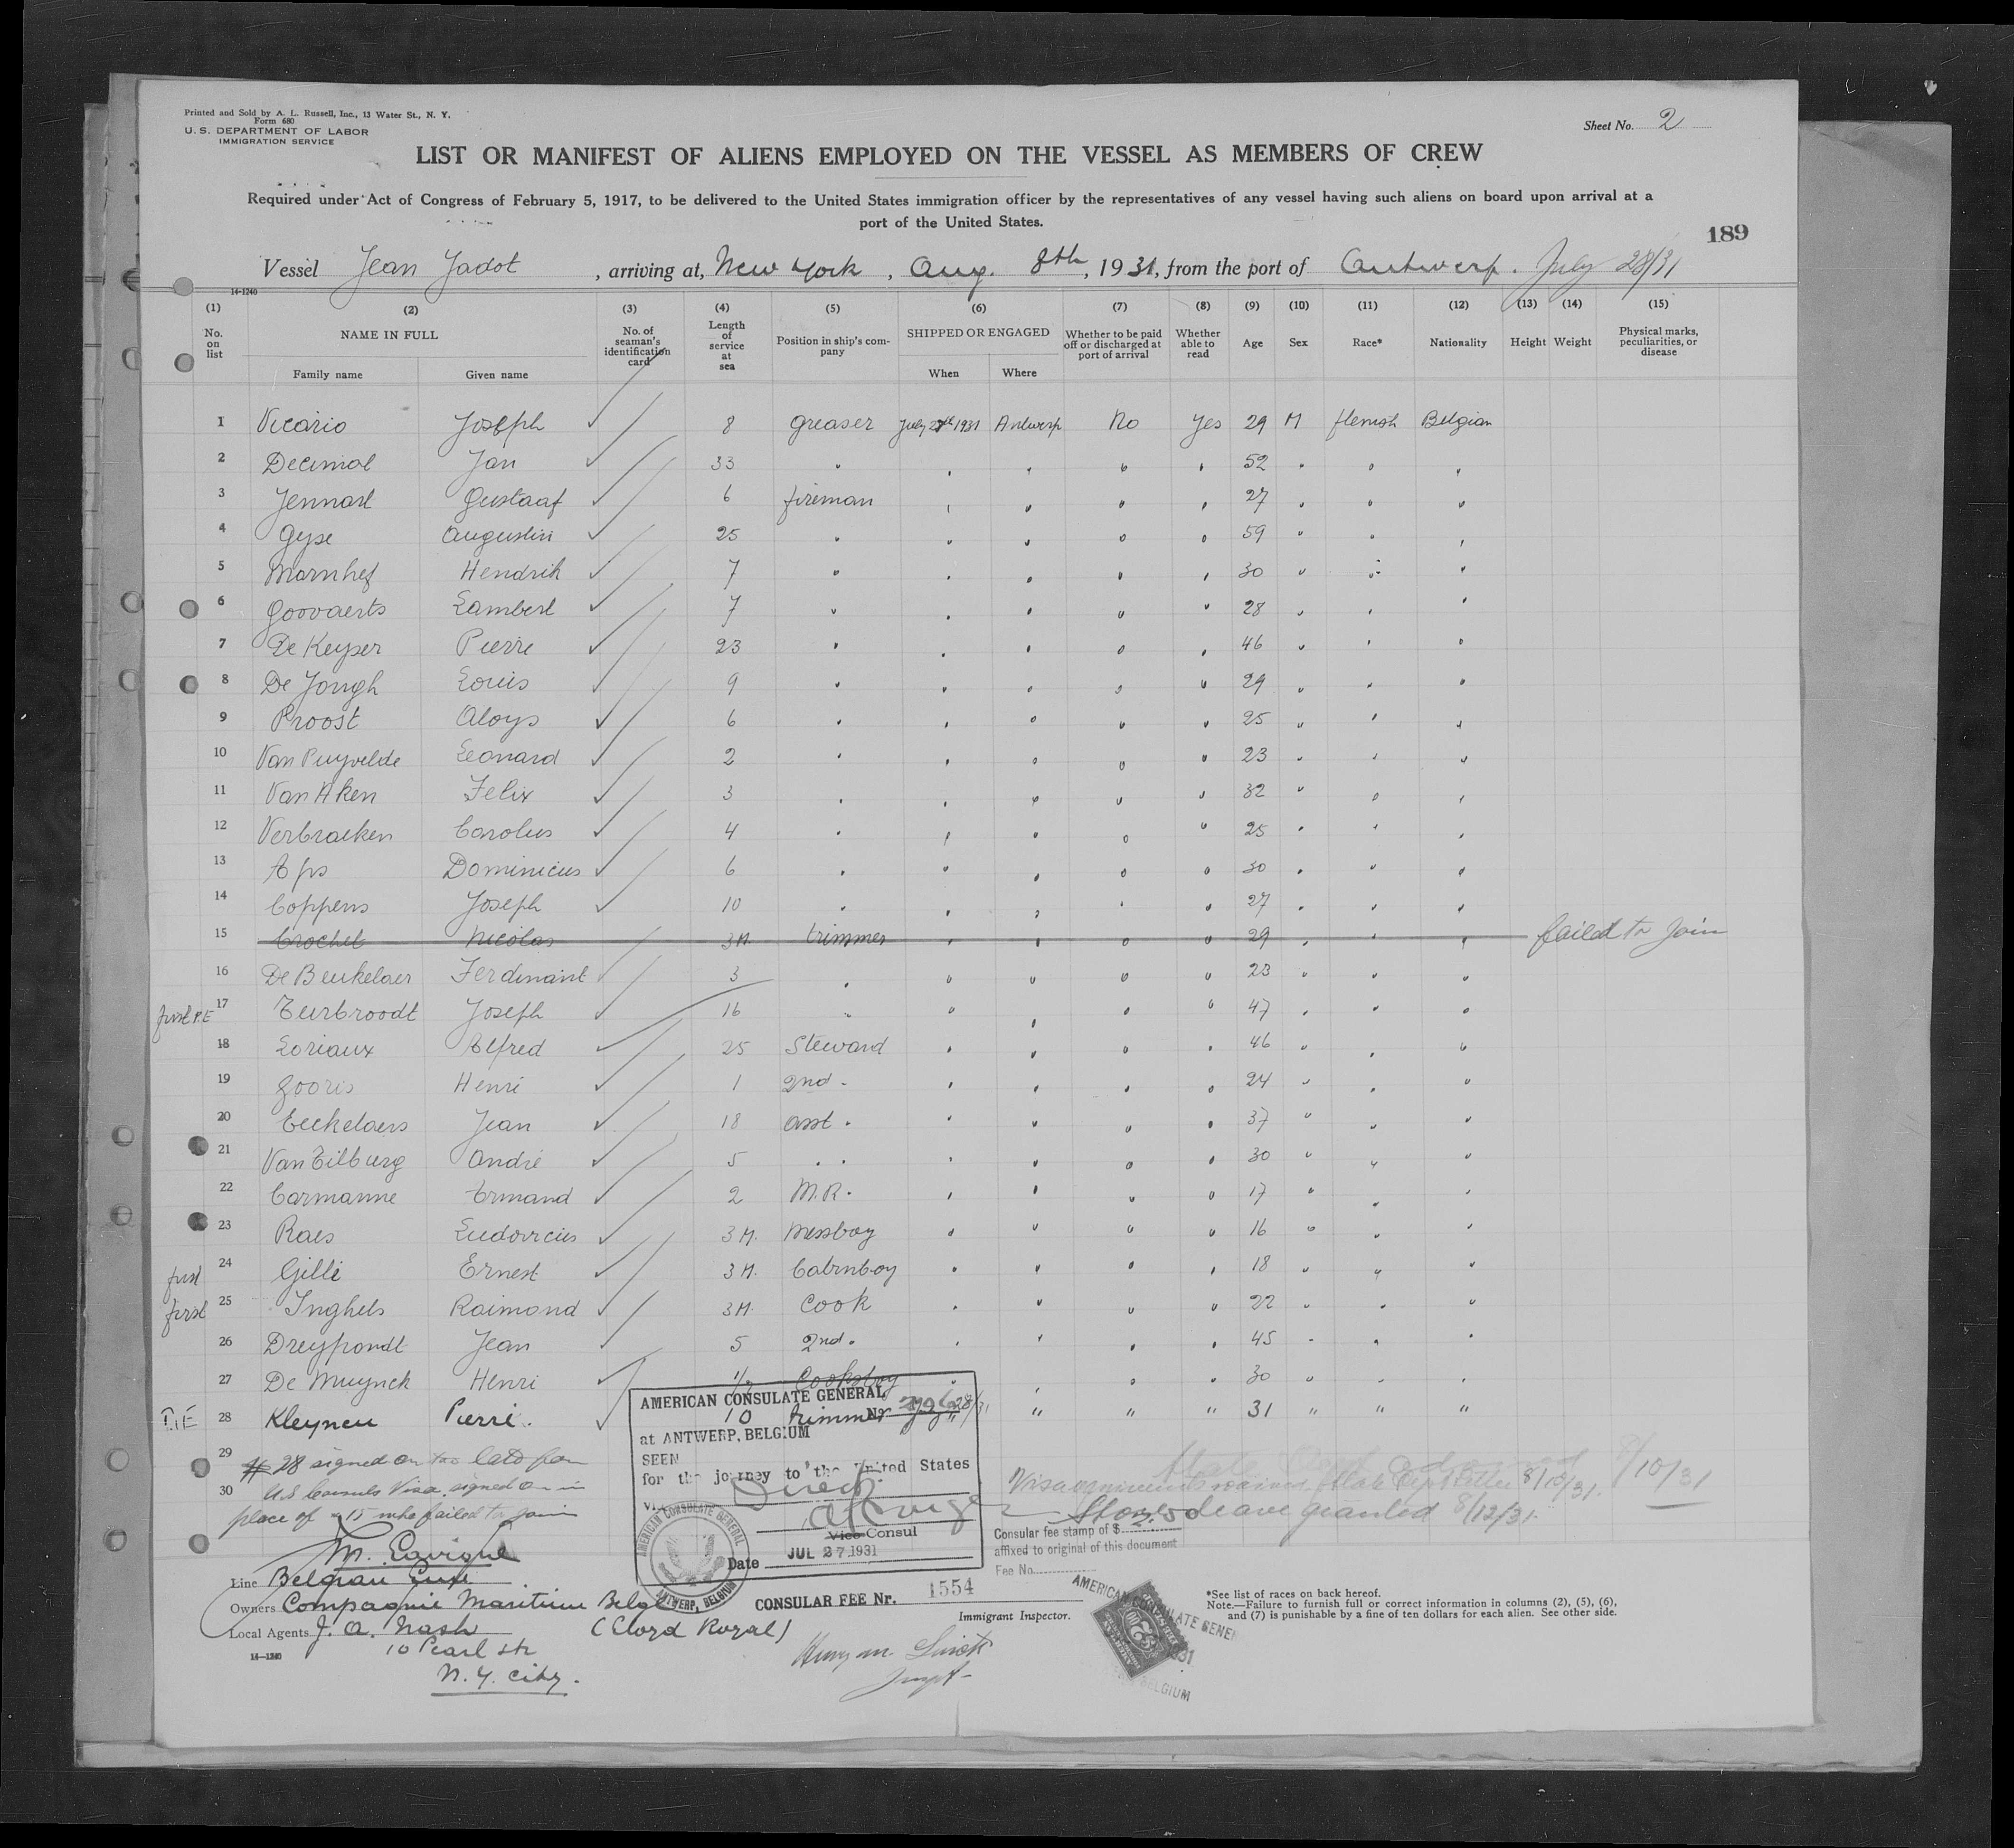 Printed and Sold by A. L. Russell, Inc., 13 Water St., N. Y.
Form 680
U. S. DEPARTMENT OF LABOR
IMMIGRATION SERVICE
Sheet No. 2
LIST OR MANIFEST OF ALIENS EMPLOYED ON THE VESSEL AS MEMBERS OF CREW
Required under Act of Congress of February 5, 1917, to be delivered to the United States immigration officer by the representatives of any vessel having such aliens on board upon arrival at a
port of the United States.
189
Vessel Jean Jadot, arriving at, New York, Aug. 8th, 1931, from the port of Antwerp. July 28/31
14-1240
(1) (2) (3) (4) (5) (6) (7) (8) (9) (10) (11) (12) (13) (14) (15)
No. on list NAME IN FULL No. of seaman's identification card Length of service at sea Position in ship's company SHIPPED OR ENGAGED Whether to be paid off or discharged at port of arrival Whether able to read Age Sex Race* Nationality Height Weight Physical marks, peculiarities, or disease
Family name Given name When Where
1 Vicario Joseph 8 greaser July 27th 1931 Antwerp No Yes 29 M flemish Belgian
2 Decimal Jan 33 " " " " " 52 " " "
3 Jennart Gustaaf 6 fireman " " " " 27 " " "
4 Gyse Augustin 25 " " " " " 59 " " "
5 Marnhef Hendrik 7 " " " " " 30 " " "
6 Goovaerts Lambert 7 " " " " " 28 " " "
7 De Keyser Pierre 23 " " " " " 46 " " "
8 De Jongh Louis 9 " " " " " 29 " " "
9 Proost Aloys 6 " " " " " 25 " " "
10 Van Puyvelde Leonard 2 " " " " " 23 " " "
11 Van Aken Felix 3 " " " " " 32 " " "
12 Verbraeken Carolus 4 " " " " " 25 " " "
13 Aps Dominicus 6 " " " " " 30 " " "
14 Coppens Joseph 10 " " " " " 27 " " "
15 Crochet Nicolas 3M. trimmer " " " " 29 " " " failed to join
16 De Beukelaer Ferdinant 3 " " " " " 23 " " "
first P.E 17 Teirbroodt Joseph 16 " " " " " 47 " " "
18 Loriaux Alfred 25 Steward " " " " 46 " " "
19 Gooris Henri 1 2nd " " " " " 24 " " "
20 Eeckelaers Jean 18 asst " " " " " 37 " " "
21 Van Tilburg André 5 " " " " " " 30 " " "
22 Carmanne Armand 2 M.R. " " " " 17 " " "
23 Raes Ludovicus 3M. Messboy " " " " 16 " " "
first 24 Gille Ernest 3M. Cabinboy " " " " 18 " " "
first 25 Inghels Raimond 3M. Cook " " " " 22 " " "
26 Dreypondt Jean 5 2nd " " " " " 45 " " "
27 De Muynck Henri 1/2 Cooksboy " " " " 30 " " "
28 Kleynen Pierre. 10 trimmer 28/31 " " " 31 " " "
29 # 28 signed on too late for
30 U.S Consuls Visa, signed on in
place of # 15 who failed to join
AMERICAN CONSULATE GENERAL
at ANTWERP, BELGIUM
SEEN
for the journey to the United States
VIA Direct
Vice Consul
Date JUL 27 1931
AMERICAN CONSULATE GENERAL
ANTWERP, BELGIUM
8/10/31
Shore leave granted 8/12/31.
Consular fee stamp of $
affixed to original of this document
Fee No.
Line Belgian Line
Owners Compagnie Maritime Belge
(Lloyd Royal)
Local Agents J. A. Nash
10 Pearl str
N. Y. City.
14-1240
CONSULAR FEE Nr. 1554
Immigrant Inspector.
*See list of races on back hereof.
Note.—Failure to furnish full or correct information in columns (2), (5), (6),
and (7) is punishable by a fine of ten dollars for each alien. See other side.